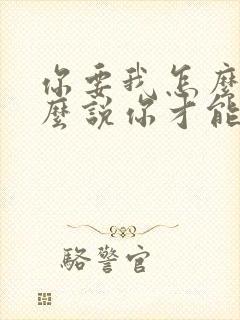 你要我怎麼
麼說你才能
駱警官